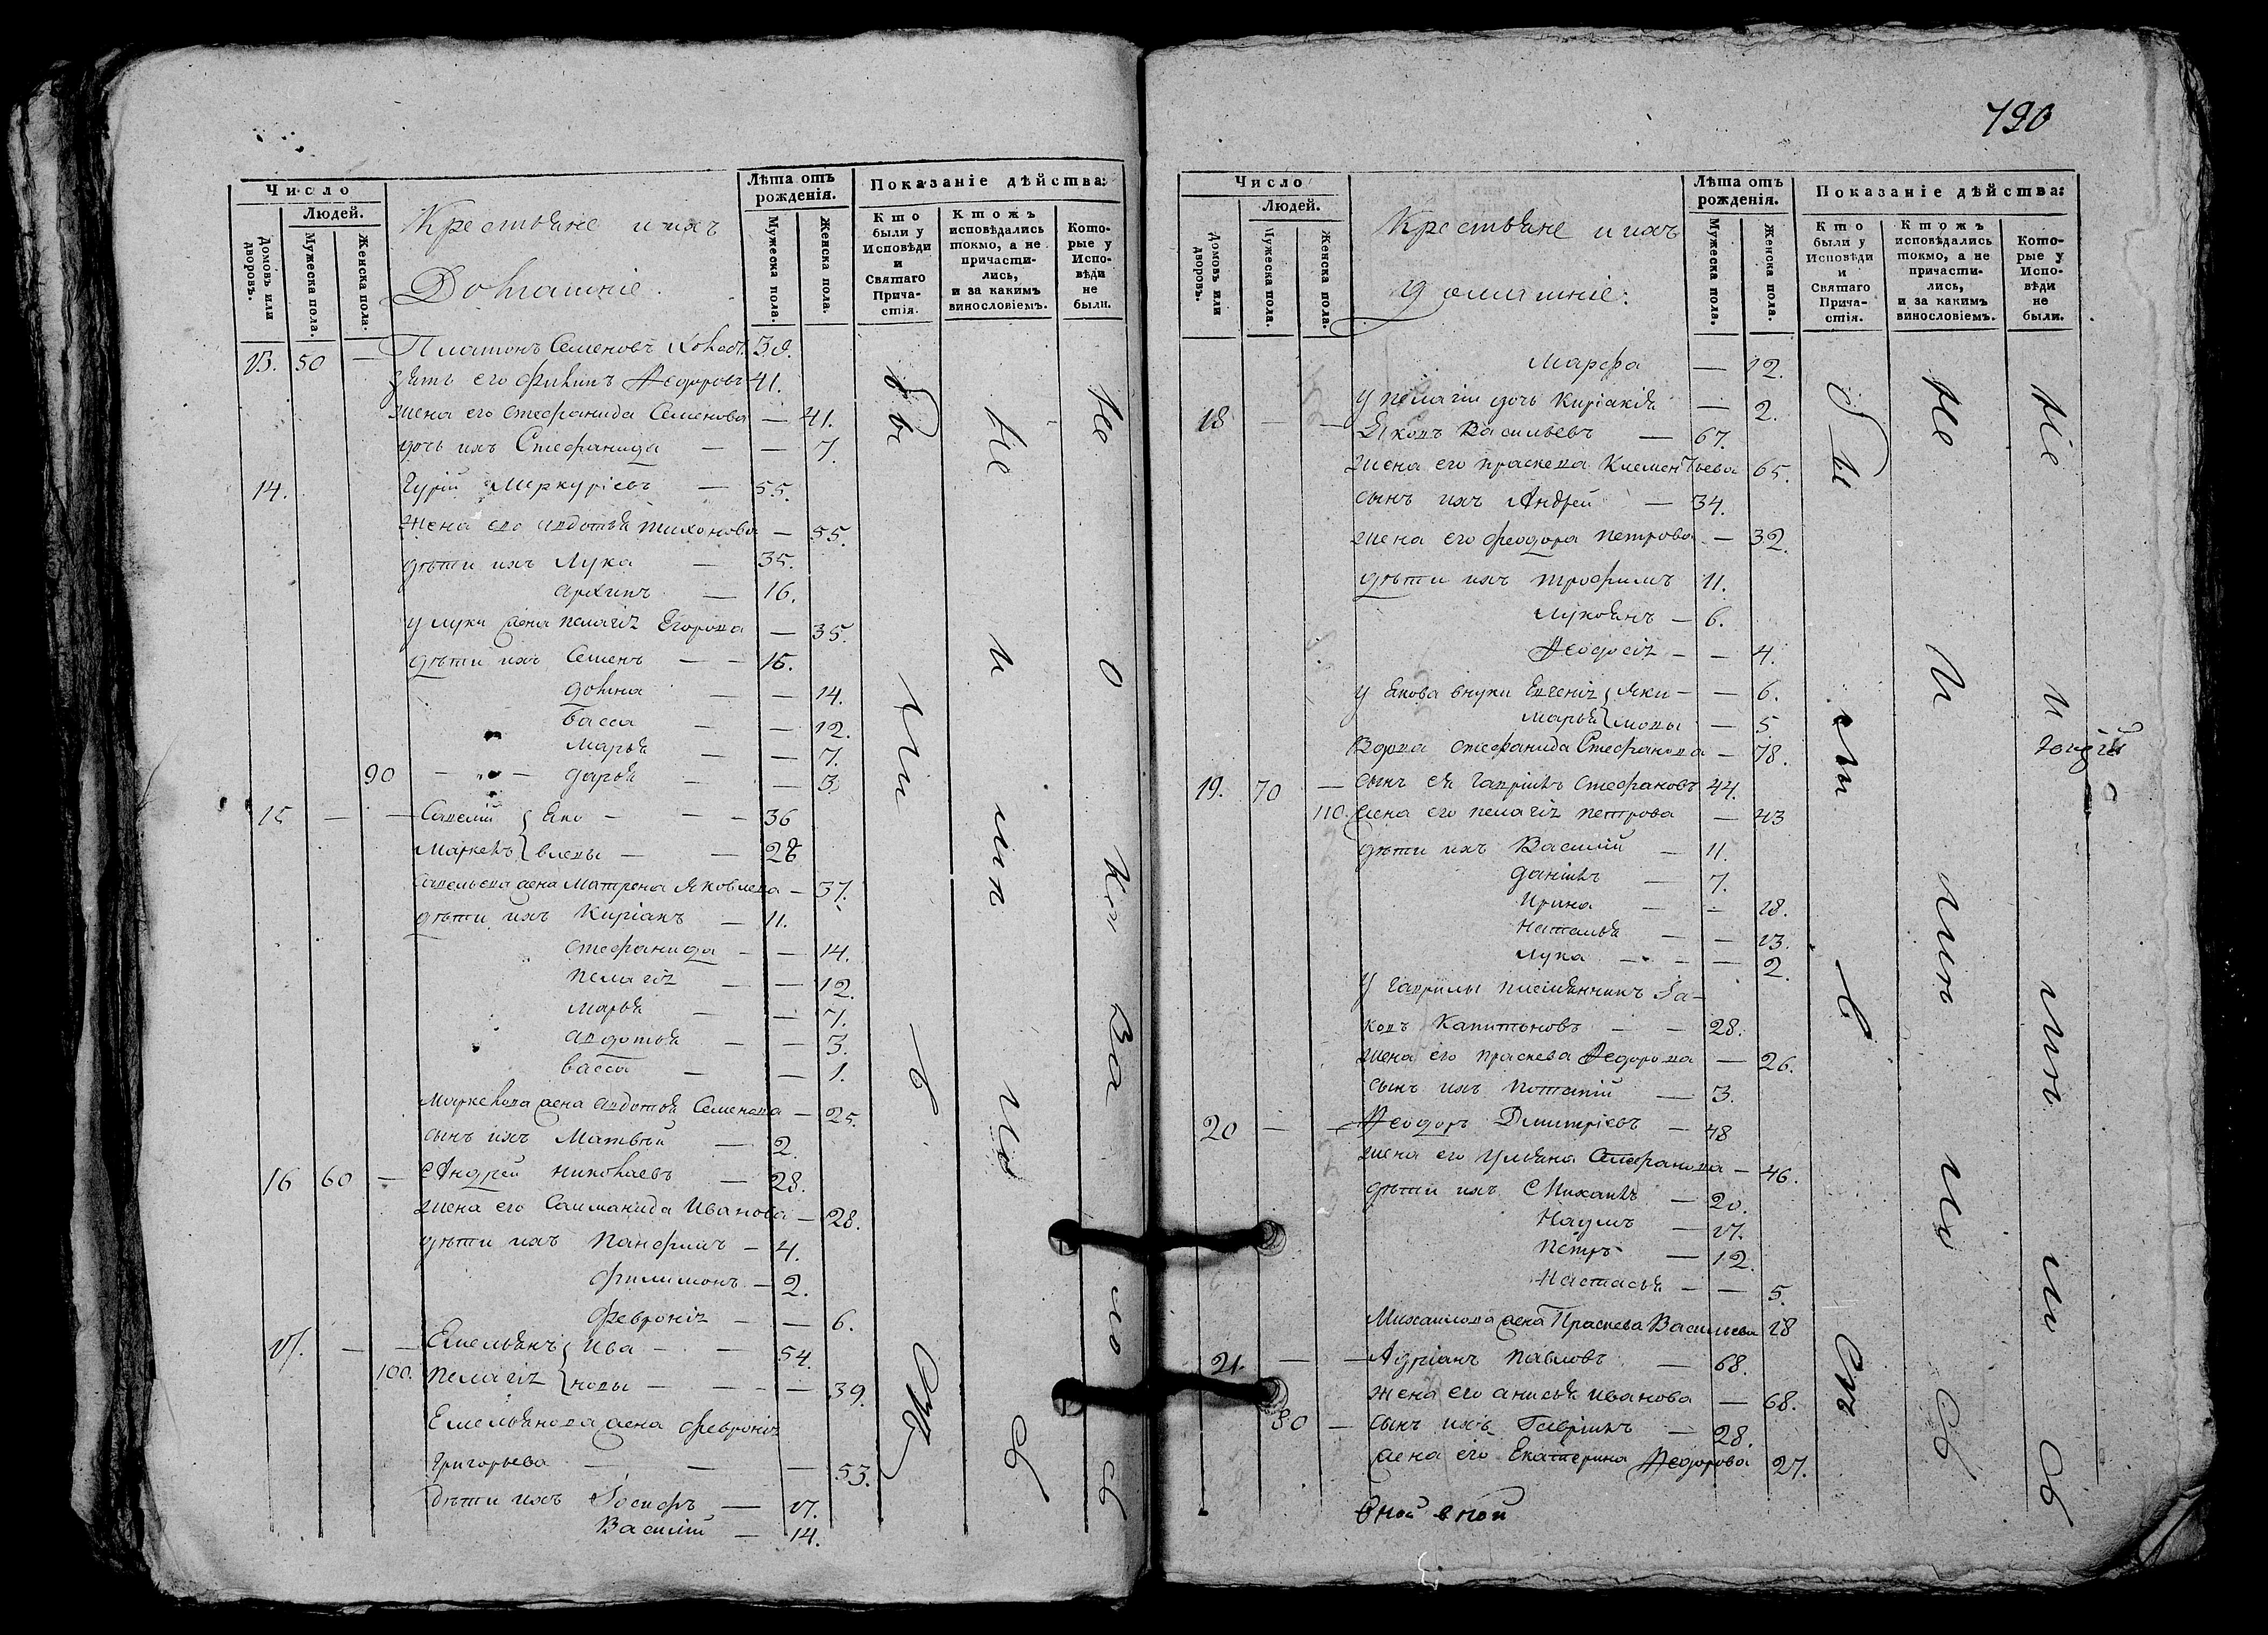 Число
Людей.
Домовъ или дворовъ.
Мужеска пола.
Женска пола.
Крестьяне и ихъ
Домашніе.
Лѣта отъ рожденія.
Мужеска пола.
Женска пола.
Показаніе дѣйства:
Кто были у Исповѣди и Святаго Причастія.
Ктожъ исповѣдались токмо, а не причастились, и за какимъ винословіемъ.
Которые у Исповѣди не были.
13. 50 — Платонъ Семеновъ 39.
зять его Филипъ Ѳедоровъ 41.
жена его Стефанида Семенова — 41.
дочь ихъ Стефанида — — 7.
14. Гурій Меркуріевъ — 55.
жена его авдотья тихонова — 55.
дѣти ихъ Лука — 35.
архипъ — 16.
у луки жена пелагія Егорова — 35.
дѣти ихъ Семенъ — — 15.
домна — — 14.
васса — — 12.
марья — — 7.
90 — — дарья — — 3.
15 — — Савелій } Яко — — — 36
Маркелъ } влевы — — 28
Савельева жена Матрена Яковлева — 37.
дѣти ихъ Киріакъ — 11.
стефанида — — 14.
пелагія — — 12.
марья — — 7.
авдотья — — 3.
васса — — 1.
Маркелова жена авдотья Семенова — 25.
сынъ ихъ Матвѣй — 2.
16 60 — Андрей николаевъ — 28.
жена его Иванова — 28.
дѣти ихъ Панфилъ — 4.
филимонъ — 2.
февронія — — 6.
17. — — Емельянъ } ива — — 54.
100. пелагія } новы — — — — 39.
Емельянова жена февронія
григорьева — — — 53.
дѣти ихъ Іосифъ — 17.
Василій — 14.
Были
у
Не и ни по
Не
о
190
Число
Людей.
Домовъ или дворовъ.
Мужеска пола.
Женска пола.
Крестьяне и ихъ
домашніе:
Лѣта отъ рожденія.
Мужеска пола.
Женска пола.
Показаніе дѣйства:
Кто были у Исповѣди и Святаго Причастія.
Ктожъ исповѣдались токмо, а не причастились, и за какимъ винословіемъ.
Которые у Исповѣди не были.
марфа — 12.
у пелагіи дочь Киріакія — 2.
18 — — Яковъ Васильевъ — 67.
жена его праскева Климентьева 65.
сынъ ихъ Андрей — 34.
жена его феодора петрова — 32.
дѣти ихъ трофимъ 11.
лукоянъ — 6.
Ѳеодосія — — 4.
у Якова внуки Евгенія } Яки — — 6.
марья } мовы — 5
Вдова стефанида Стефанова — 78.
19. 70 — сынъ ея гаврилъ Стефановъ 44.
110. жена его пелагія петрова — 43
дѣти ихъ Василій — 11.
данилъ — 7.
Ирина — — 18.
наталья — — 13.
лука — — — 2.
у гаврилы племянникъ Іа—
ковъ Капитоновъ — — 28.
жена его праскева Ѳедорова — 26.
сынъ ихъ потапій — 3.
20 — — Ѳеодоръ Димитріевъ — 48
жена его ульяна Стефанова — 46.
дѣти ихъ Михаилъ — 20.
Наумъ — 17.
петръ — 12.
настасья — — 5.
Михаилова жена Праскева Васильева 18
21. — — Адріанъ павловъ — 68.
жена его анисья иванова — 68.
80 — сынъ ихъ Гаврилъ — 28.
жена его Екатерина Ѳедорова 27.